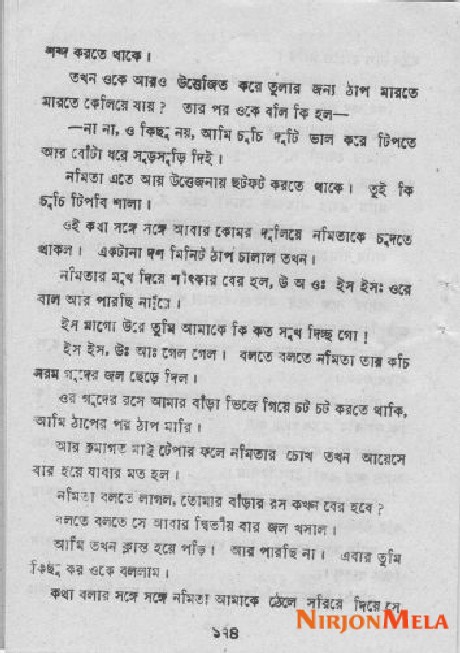 শব্দ করতে থাকে।
তখন ওকে আরও উত্তেজিত করে তুলার জন্য ঠাপ মারতে
মারতে কেলিয়ে যায়? তার পর ওকে বলি কি হল—
—না না, ও কিছু নয়, আমি চুচি দুটি ভাল করে টিপতে
আর বোঁটা ধরে সুড়সুড়ি দিই।
নমিতা এতে আয় উত্তেজনায় ছটফট করতে থাকে। তুই কি
চুচি টিপবি শালা।
ওই কথা সঙ্গে সঙ্গে আবার কোমর দুলিয়ে নমিতাকে চুদতে
থাকল। একটানা দশ মিনিট ঠাপ চালাল তখন।
নমিতার মুখ দিয়ে শীৎকার বের হল, উ অ ওঃ ইস ইসঃ ওরে
বাল আর পারছি নারে।
ইস মাগো উরে তুমি আমাকে কি কত সুখ দিচ্ছ গো!
ইস ইস, উঃ আঃ গেল গেল। বলতে বলতে নমিতা তার কচি
নরম গুদের জল ছেড়ে দিল।
ওর গুদের রসে আমার বাঁড়া ভিজে গিয়ে চট চট করতে থাকি,
আমি ঠাপের পর ঠাপ মারি।
আর ক্রমাগত মাই টেপার ফলে নমিতার চোখ তখন আয়েসে
বার হয়ে যাবার মত হল।
নমিতা বলতে লাগল, তোমার বাঁড়ার রস কখন বের হবে?
বলতে বলতে সে আবার দ্বিতীয় বার জল খসাল।
আমি তখন ক্লান্ত হয়ে পড়ি। আর পারছি না। এবার তুমি
কিছু কর ওকে বললাম।
কথা বলার সঙ্গে সঙ্গে নমিতা আমাকে ঠেলে সরিয়ে দিয়ে সে
NIRJONMELA
১৭৪